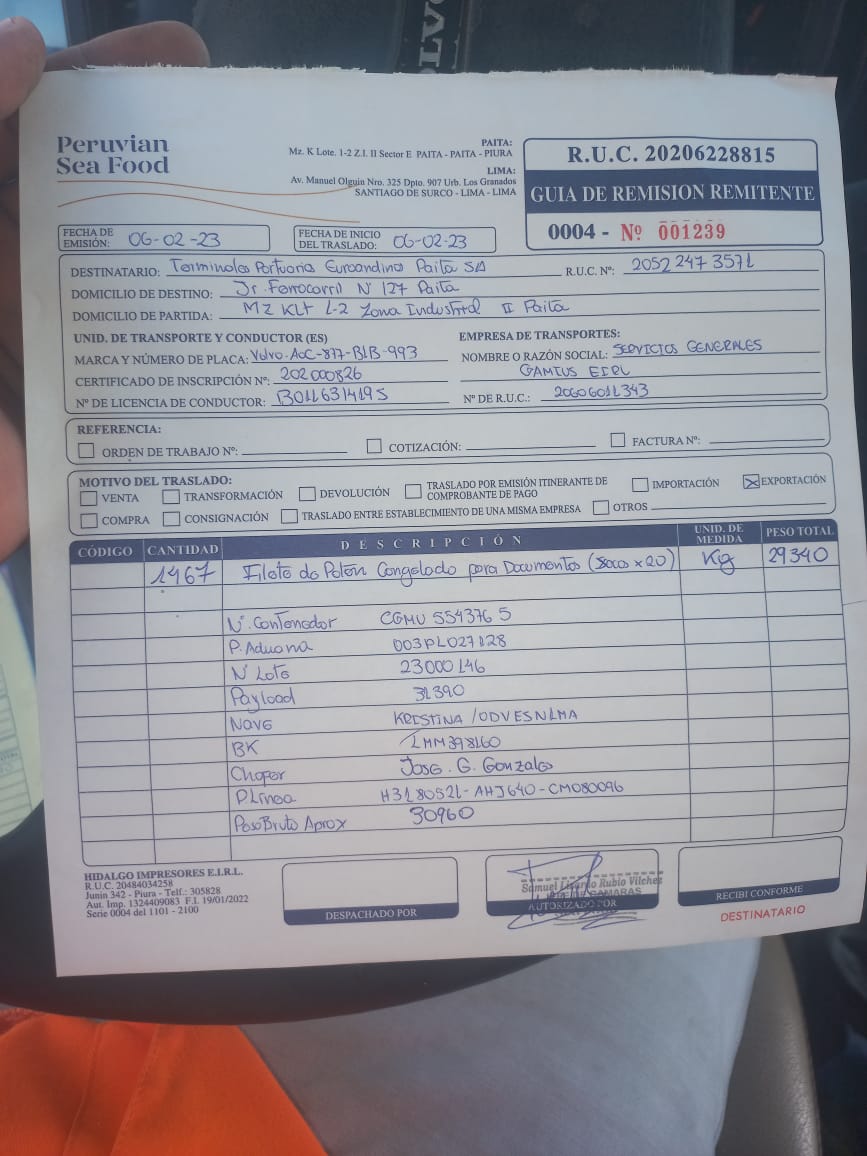 VOLVO
Peruvian
Sea Food
PAITA:
Mz. K Lote. 1-2 Z.I. II Sector E PAITA - PAITA - PIURA
LIMA:
Av. Manuel Olguin Nro. 325 Dpto. 907 Urb. Los Granados
SANTIAGO DE SURCO - LIMA - LIMA
R.U.C. 20206228815
GUIA DE REMISION REMITENTE
0004 - Nº 001239
FECHA DE EMISIÓN: 06-02-23
FECHA DE INICIO DEL TRASLADO: 06-02-23
DESTINATARIO: Terminales Portuarios Euroandinos Paita SA R.U.C. Nº: 20522473571
DOMICILIO DE DESTINO: Jr. Ferrocarril Nº 127 Paita
DOMICILIO DE PARTIDA: MZ K Lt 1-2 Zona Industrial II Paita
UNID. DE TRANSPORTE Y CONDUCTOR (ES) EMPRESA DE TRANSPORTES:
MARCA Y NÚMERO DE PLACA: Volvo-AOC-877-B1B-993 NOMBRE O RAZÓN SOCIAL: SERVICIOS GENERALES
CERTIFICADO DE INSCRIPCIÓN Nº: 202000826 GAMIUS EIRL
Nº DE LICENCIA DE CONDUCTOR: B0116314195 Nº DE R.U.C.: 20606011343
REFERENCIA:
ORDEN DE TRABAJO Nº: COTIZACIÓN: FACTURA Nº:
MOTIVO DEL TRASLADO:
VENTA TRANSFORMACIÓN DEVOLUCIÓN TRASLADO POR EMISIÓN ITINERANTE DE COMPROBANTE DE PAGO IMPORTACIÓN EXPORTACIÓN
COMPRA CONSIGNACIÓN TRASLADO ENTRE ESTABLECIMIENTO DE UNA MISMA EMPRESA OTROS
CÓDIGO CANTIDAD DESCRIPCIÓN UNID. DE MEDIDA PESO TOTAL
1467 Filete de Potón Congelado para Documentos (Sacos x 20) Kg 29340
Nº Contenedor CGMU 554376 5
P. Aduana 003PL027128
Nº Lote 23000146
Payload 31390
Nave KRISTINA /ODVESN1MA
BK LMM398160
Chofer Jose. G. Gonzales
P.Linea H3180521-AHJ640-CM080096
Peso Bruto Aprox 30960
HIDALGO IMPRESORES E.I.R.L.
R.U.C. 20484034258
Junin 342 - Piura - Telf.: 305828
Aut. Imp. 1324409083 F.I. 19/01/2022
Serie 0004 del 1101 - 2100
DESPACHADO POR
Samuel Lizardo Rubio Vilchez
CAMARAS
AUTORIZADO POR
RECIBI CONFORME
DESTINATARIO